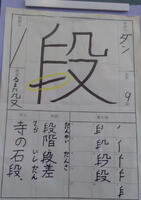 段
ダン
9
るまた
殳
段階 段差
だんかい だんさ
寺の石段
てら いしだん
段 段 段 段